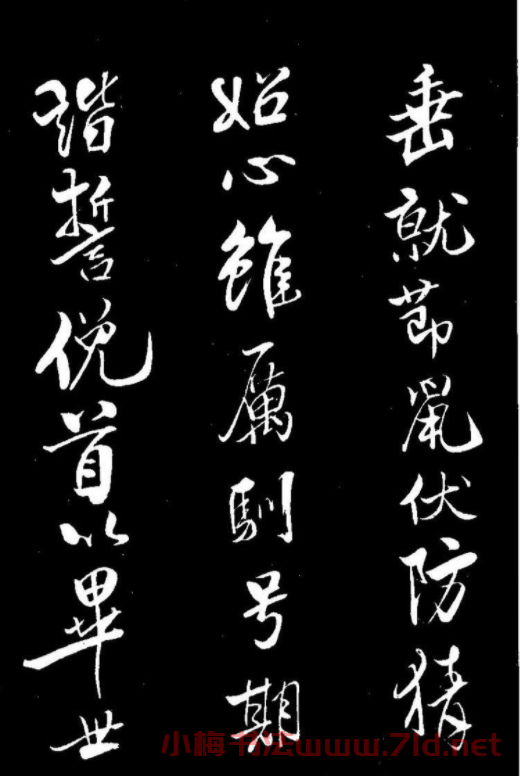 垂就莭鼠伏防猜
妬心雖厲馴号期
諧誓俛首以畢世
小梅书法www.7ld.net